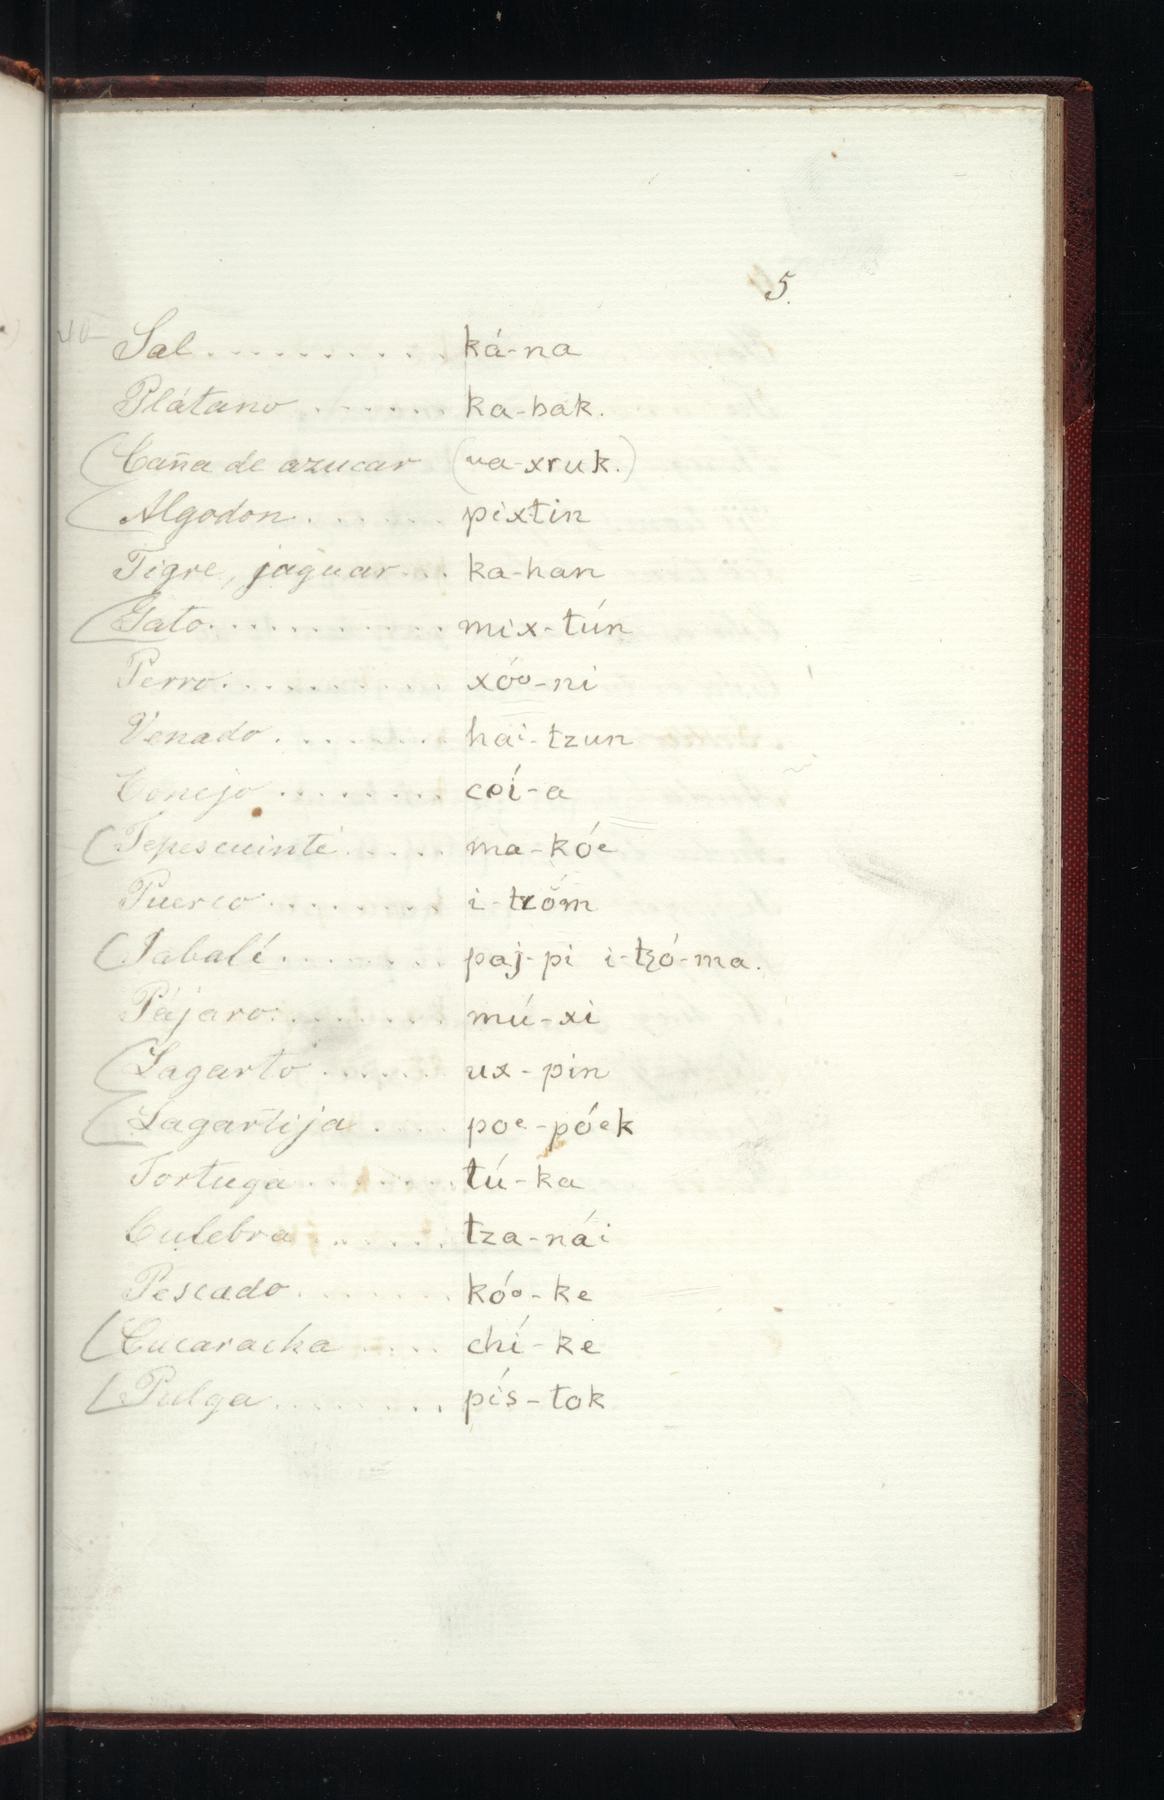 5.
Sal . . . . . . . . . . ká-na
Plátano . . . . . . ka-bak.
(Caña de azucar (va-xruk.)
(Algodon . . . . . . pixtin
Tigre, jaguar . . . ka-han
(Gato . . . . . . . . . . mix-tún
Perro . . . . . . . . . . xóº-ni
Venado . . . . . . . . haⁱ-tzun
Conejo . . . . . . . coí-a
(Tepescuinte . . . . . ma-kóᵉ
Puerco . . . . . . . . i-tzŏm
(Jabalí . . . . . . . . paj-pi i-tzó-ma.
Pájaro . . . . . . . . mú-xi
(Lagarto . . . . . . ux-pin
(Lagartija . . . . poᵉ-póᵉk
Tortuga . . . . . . . . tú-ka
Culebra . . . . . . . tza-náⁱ
Pescado . . . . . . . . kóº-ke
(Cucaracha . . . . chí-ke
(Pulga . . . . . . . . pís-tok